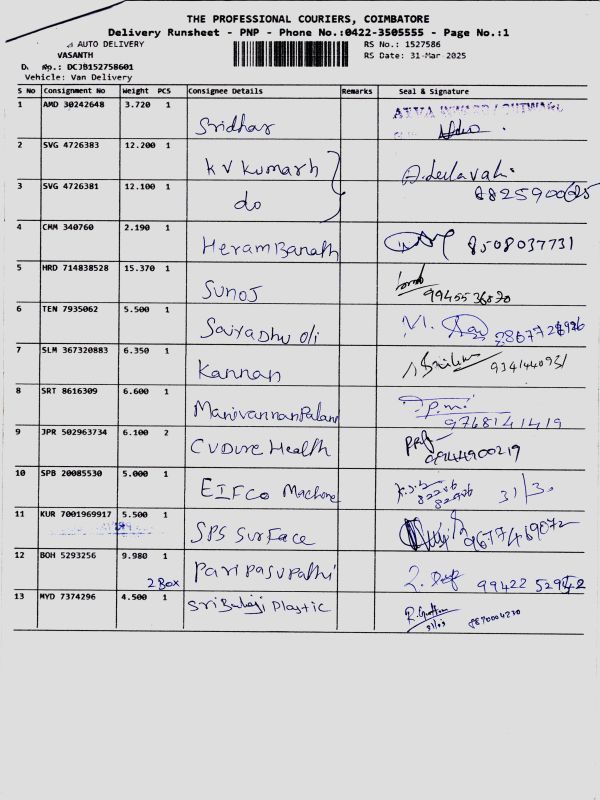 THE PROFESSIONAL COURIERS, COIMBATORE
Delivery Runsheet - PNP - Phone No.:0422-3505555 - Page No.:1
AUTO DELIVERY RS No.: 1527586
VASANTH RS Date: 31-Mar 2025
No.: DCJB152758601
Vehicle: Van Delivery
S No Consignment No Weight PCS Consignee Details Remarks Seal & Signature
1 AMD 30242648 3.720 1 Sridhar
2 SVG 4726383 12.200 1 KV Kumarh
3 SVG 4726381 12.100 1 do
4 CMM 340760 2.190 1 HeramBanath 8508037731
5 HRD 714838528 15.370 1 Sunoj
6 TEN 7935062 5.500 1
7 SLM 367320883 6.350 1 Kannan
8 SRT 8616309 6.600 1 ManivannanPalani 9768141419
9 JPR 502963734 6.100 2 CVDure Health
10 SPB 20085530 5.000 1 EIFCo Machine 31/3.
11 KUR 7001969917 5.500 1 SPS Surface
12 BOH 5293256 9.980 1 Paripasupathi
2 Box
13 MYD 7374296 4.500 1 SriBalaji Plastic